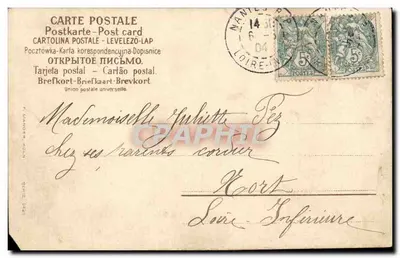 CARTE POSTALE
Postkarte - Post card
CARTOLINA POSTALE - LEVELEZO-LAP
Pocztówka-Karta korespondencyjna-Dopisnice
ОТКРЫТОЕ ПИСЬМО.
Tarjeta postal - Cartão postal
Brefkort-Briefkaart-Brevkort
Union postale universelle.
NANTES
14
6
04
LOIRE
5
5
Mademoiselle Juliette Fez
CPARAMA
chez ses parents cordier
Nort
Loire Inférieure